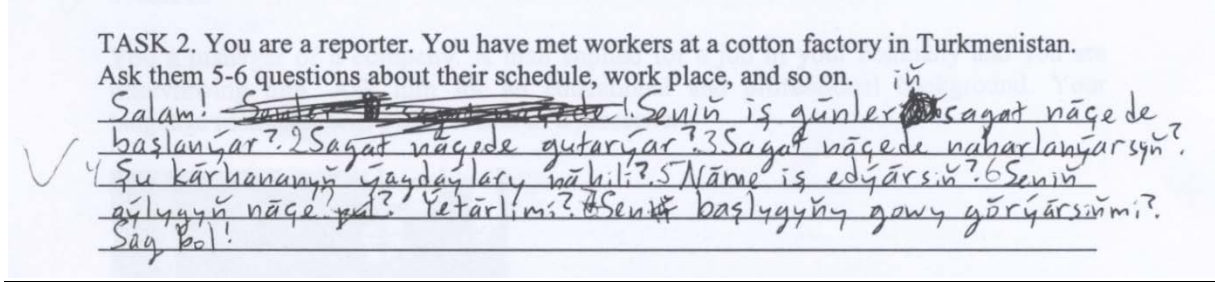 TASK 2. You are a reporter. You have met workers at a cotton factory in Turkmenistan.
Ask them 5-6 questions about their schedule, work place, and so on.
Salam! 1.Seniň iş günleriň sagat näçe de
başlanýar?. 2Sagat näçede gutarýar?.3Sagat näçede naharlanýarsyň?.
4 Şu kärhananyň ýagdaýlary nähili?.5Näme iş edýärsiň?.6Seniň
aýlygyň näçe? Ýetärlimi?. 7Sen başlygyňy gowy görýärsiňmi?.
Sag bol!